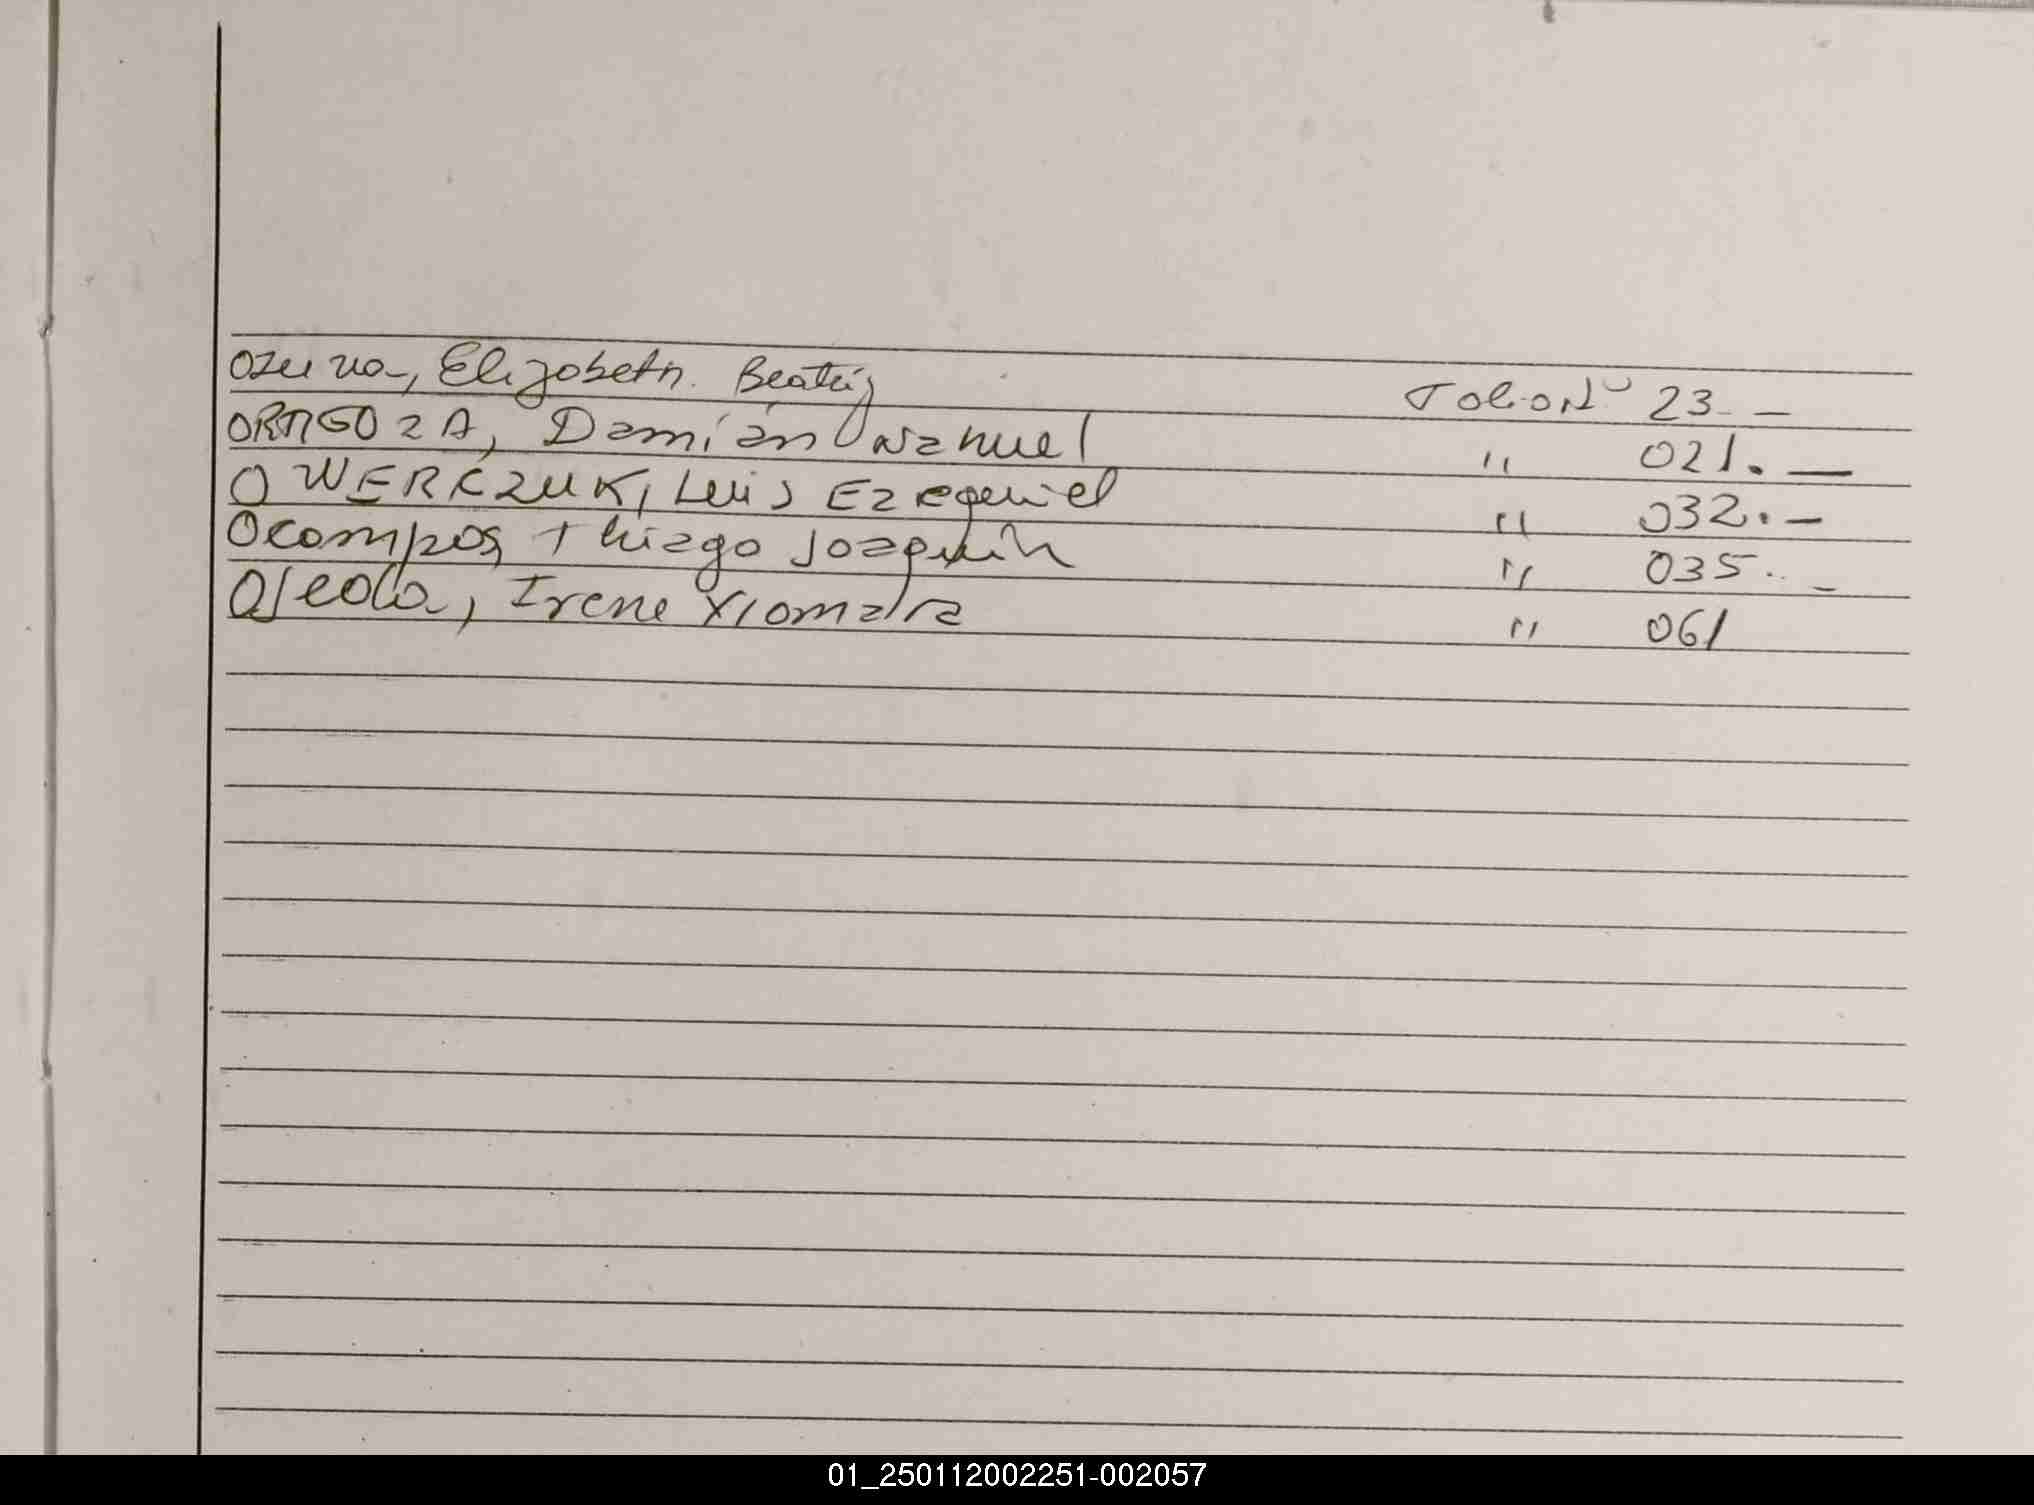 Ozuna, Elizabeth. Beatriz Folio Nº 23. —
ORTIGOZA, Damián Nahuel " 021. —
OWERKZUK, Luis Ezequiel " 032. —
Ocampos, Thiago Joaquín " 035. . —
Ojeda, Irene Xiomara " 061
01_250112002251-002057